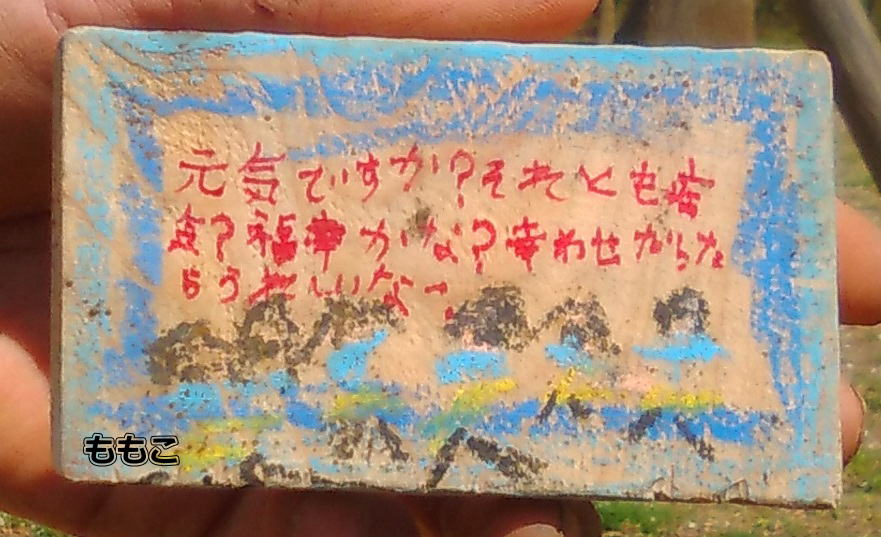 元気ですか？それとも
？福幸かな？幸わせ
らうれしいなー
ももこ